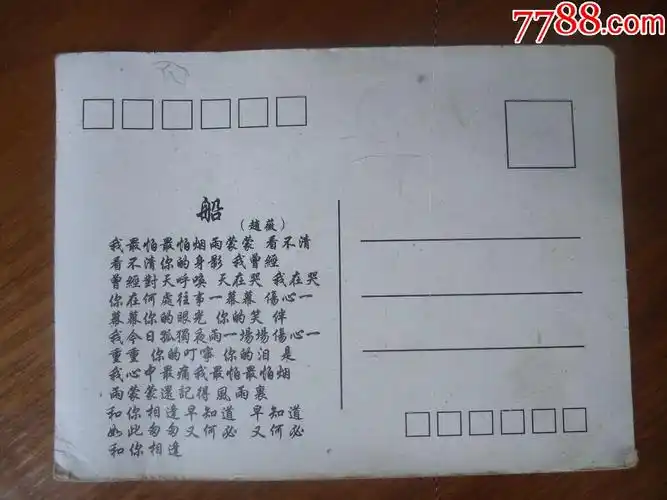 7788.com
船
(趙薇)
我最怕最怕烟雨蒙蒙 看不清
看不清你的身影 我曾經
曾經對天呼喚 天在哭 我在哭
你在何處往事一幕幕 傷心一
幕幕你的眼光 你的笑 伴
我今日孤獨夜雨一場場傷心一
重重 你的叮嚀 你的泪 是
我心中最痛我最怕最怕烟
雨蒙蒙還記得風雨裏
和你相逢早知道 早知道
如此匆匆又何必 又何必
和你相逢